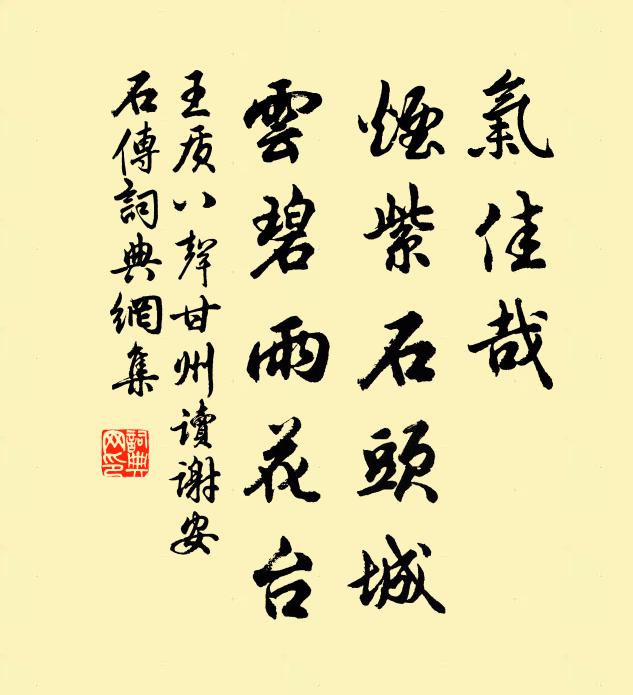 氣佳哉
煙紫石頭城
雲碧雨花台
王质八聲甘州讀謝安
石傳詞典網集
詞典网印